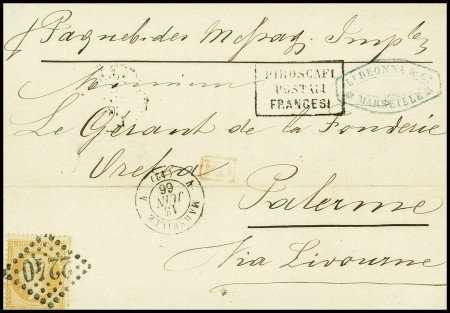 Paquebots des Messag. Imples
PIROSCAFI
POSTALI
FRANCESI
DEONNA & Co
MARSEILLE
Monsieur
Le Gérant de la Fonderie
Oretea
P.D.
MARSEILLE
12
JUIN
66
Palerme
Via Livourne
2240